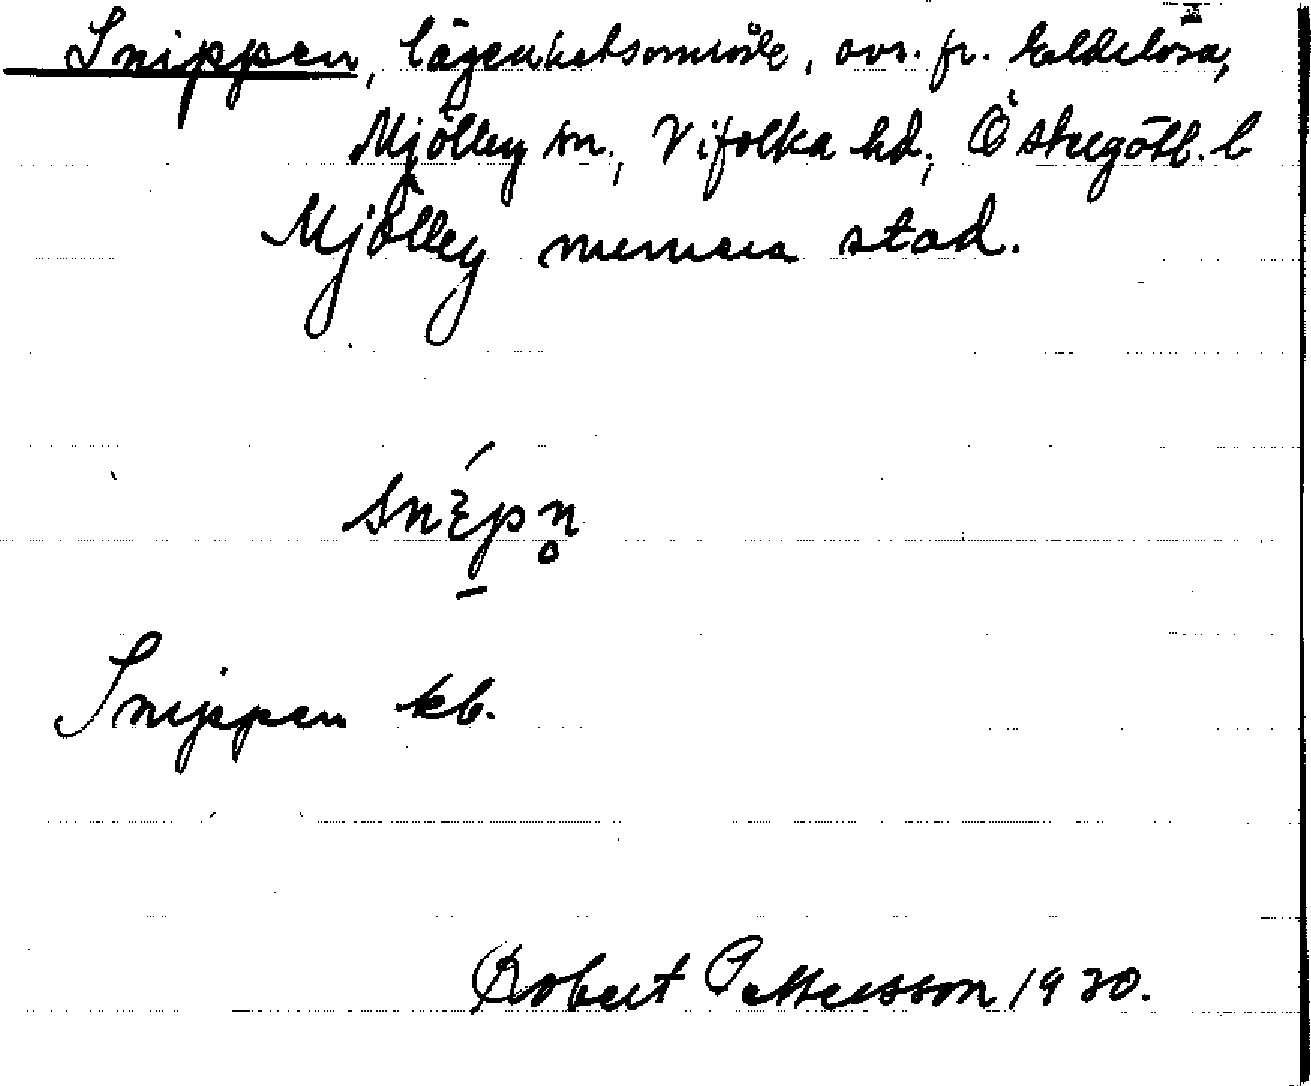 Snippen, lägenhetsområde, avs. fr. Eldslösa,
Mjölby sn., Vifolka hd, Östergötl. l
Mjölby numera stad.
snɛ́pn̥
Snippen kb.
Robert Pettersson 1930.